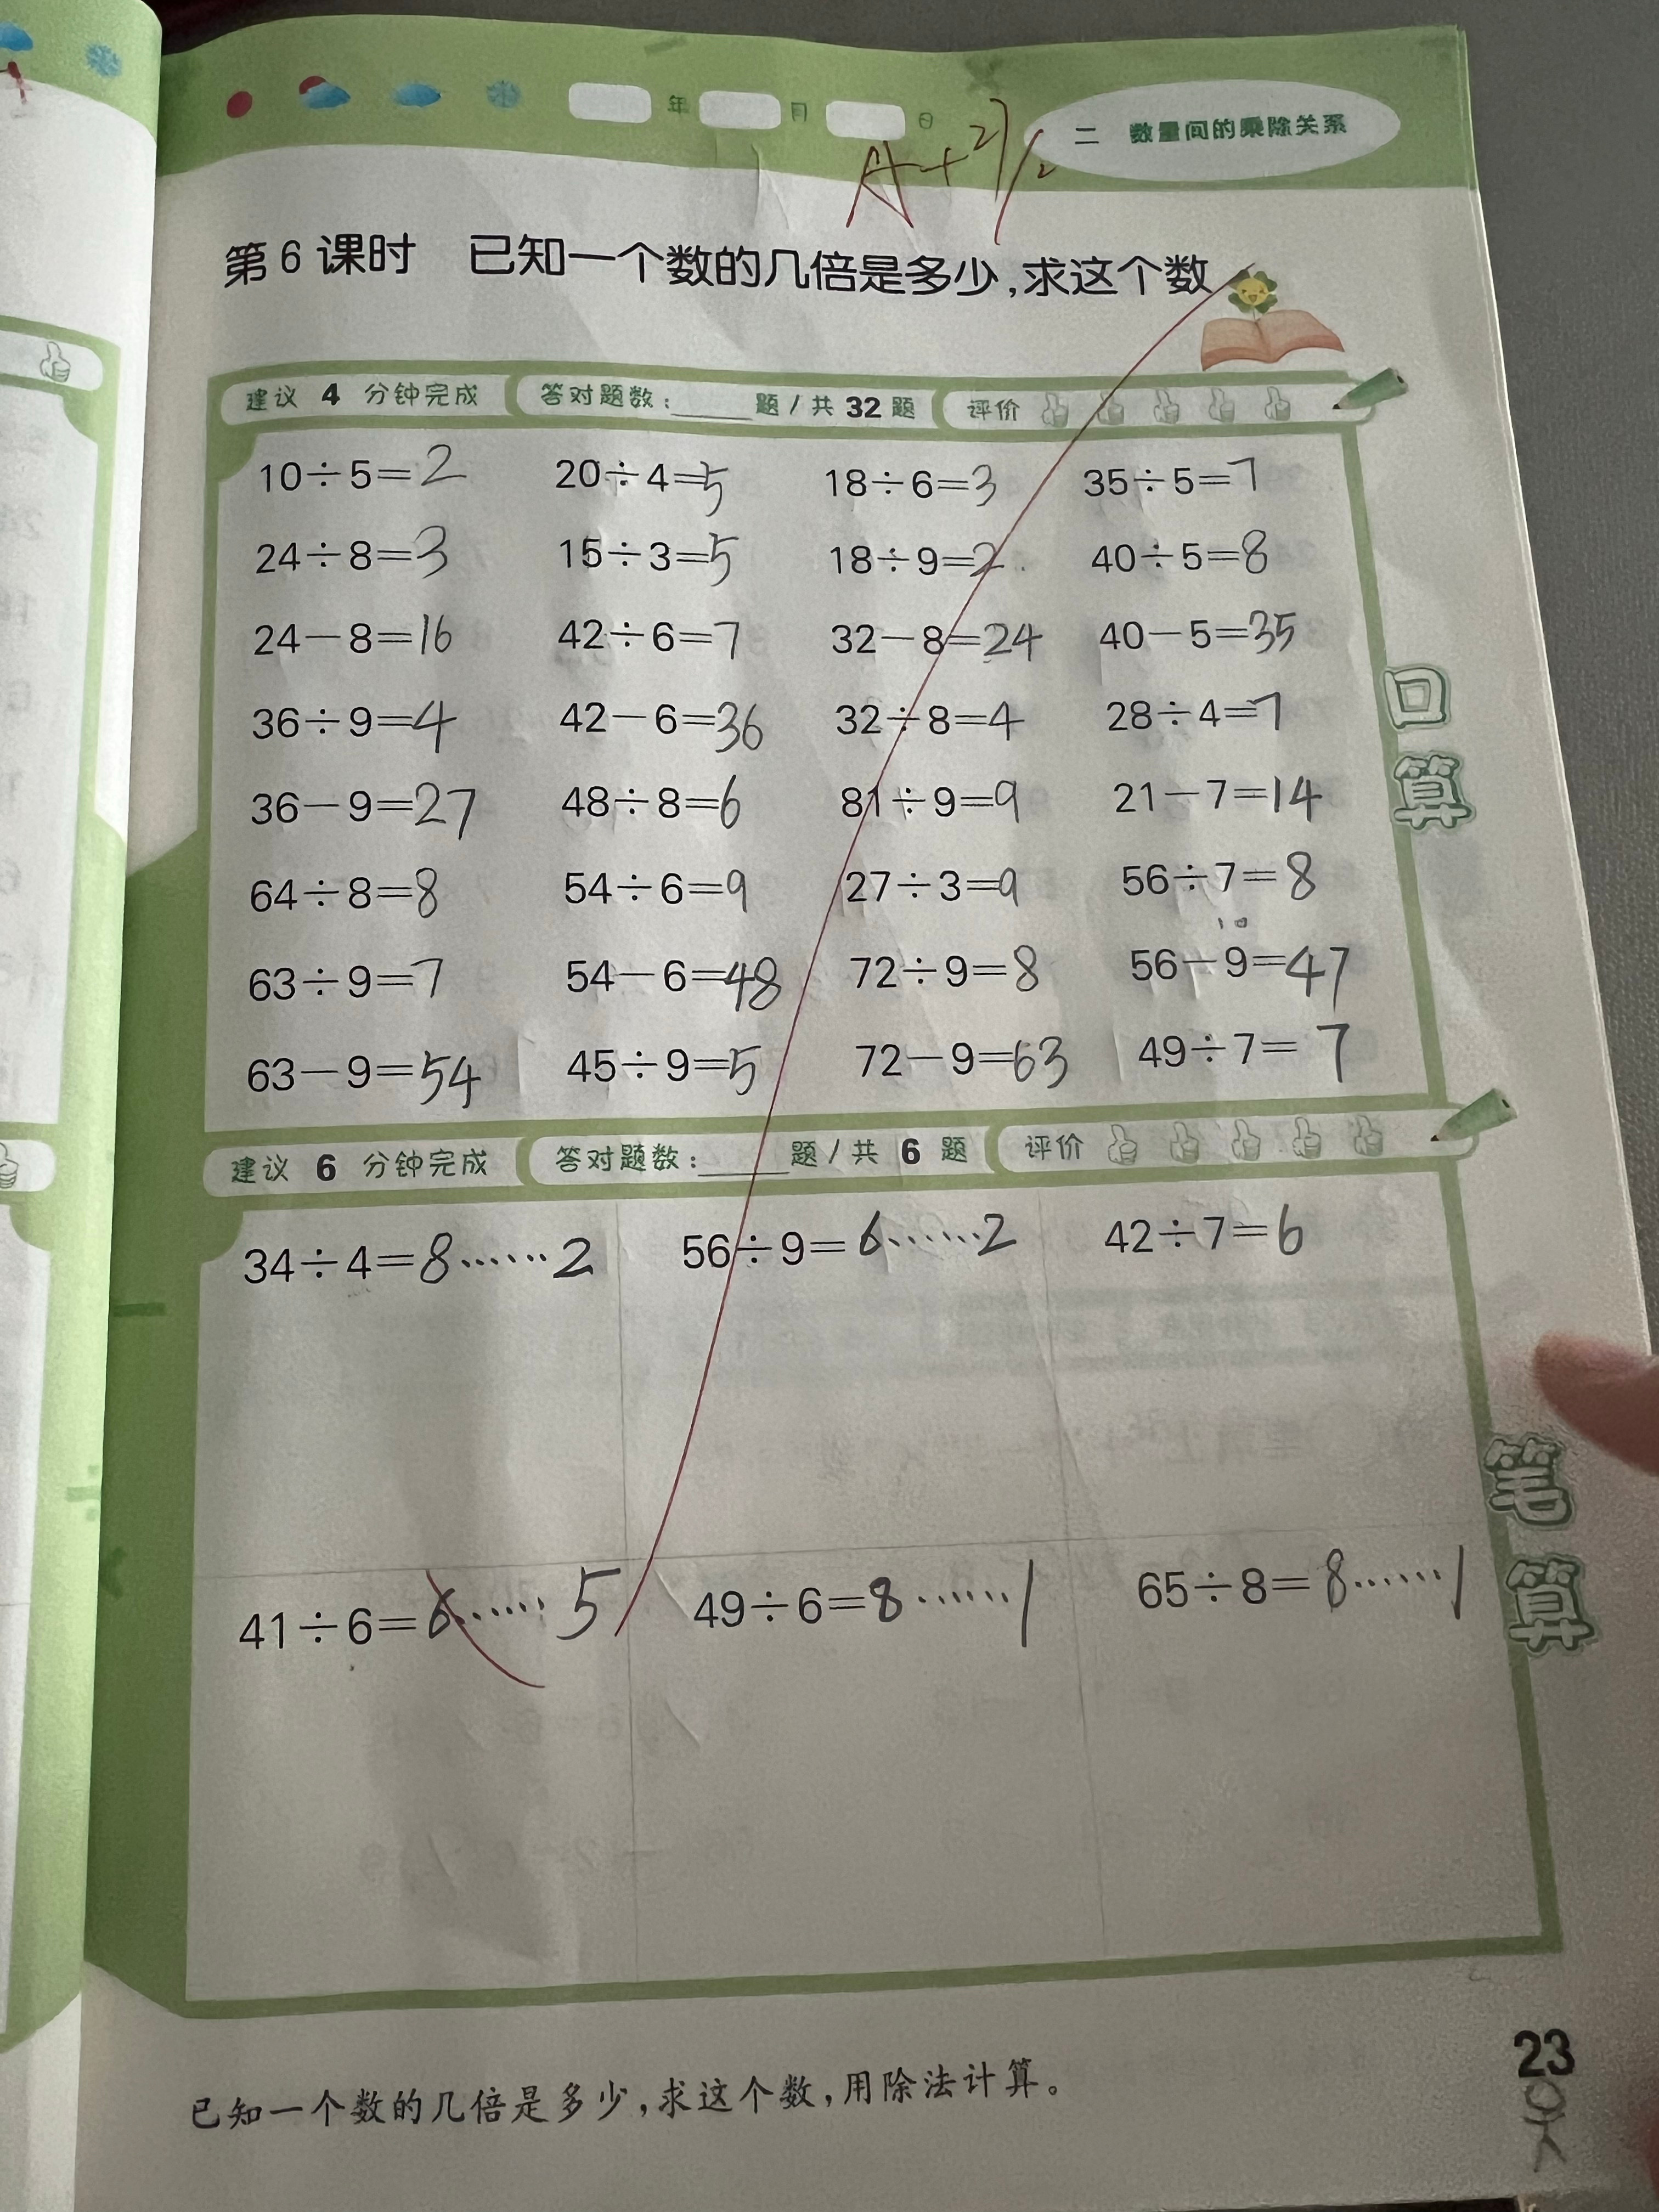 年 月 日
二 数量间的乘除关系
A+
第6课时 已知一个数的几倍是多少,求这个数
建议 4 分钟完成 答对题数:____题/共 32 题 评价
10÷5=2 20÷4=5 18÷6=3 35÷5=7
24÷8=3 15÷3=5 18÷9=2 40÷5=8
24-8=16 42÷6=7 32-8=24 40-5=35
36÷9=4 42-6=36 32÷8=4 28÷4=7
36-9=27 48÷8=6 81÷9=9 21-7=14
64÷8=8 54÷6=9 27÷3=9 56÷7=8
63÷9=7 54-6=48 72÷9=8 56-9=47
63-9=54 45÷9=5 72-9=63 49÷7=7
口算
建议 6 分钟完成 答对题数:____题/共 6 题 评价
34÷4=8……2 56÷9=6……2 42÷7=6
41÷6=6……5 49÷6=8……1 65÷8=8……1
笔算
已知一个数的几倍是多少,求这个数,用除法计算。
23